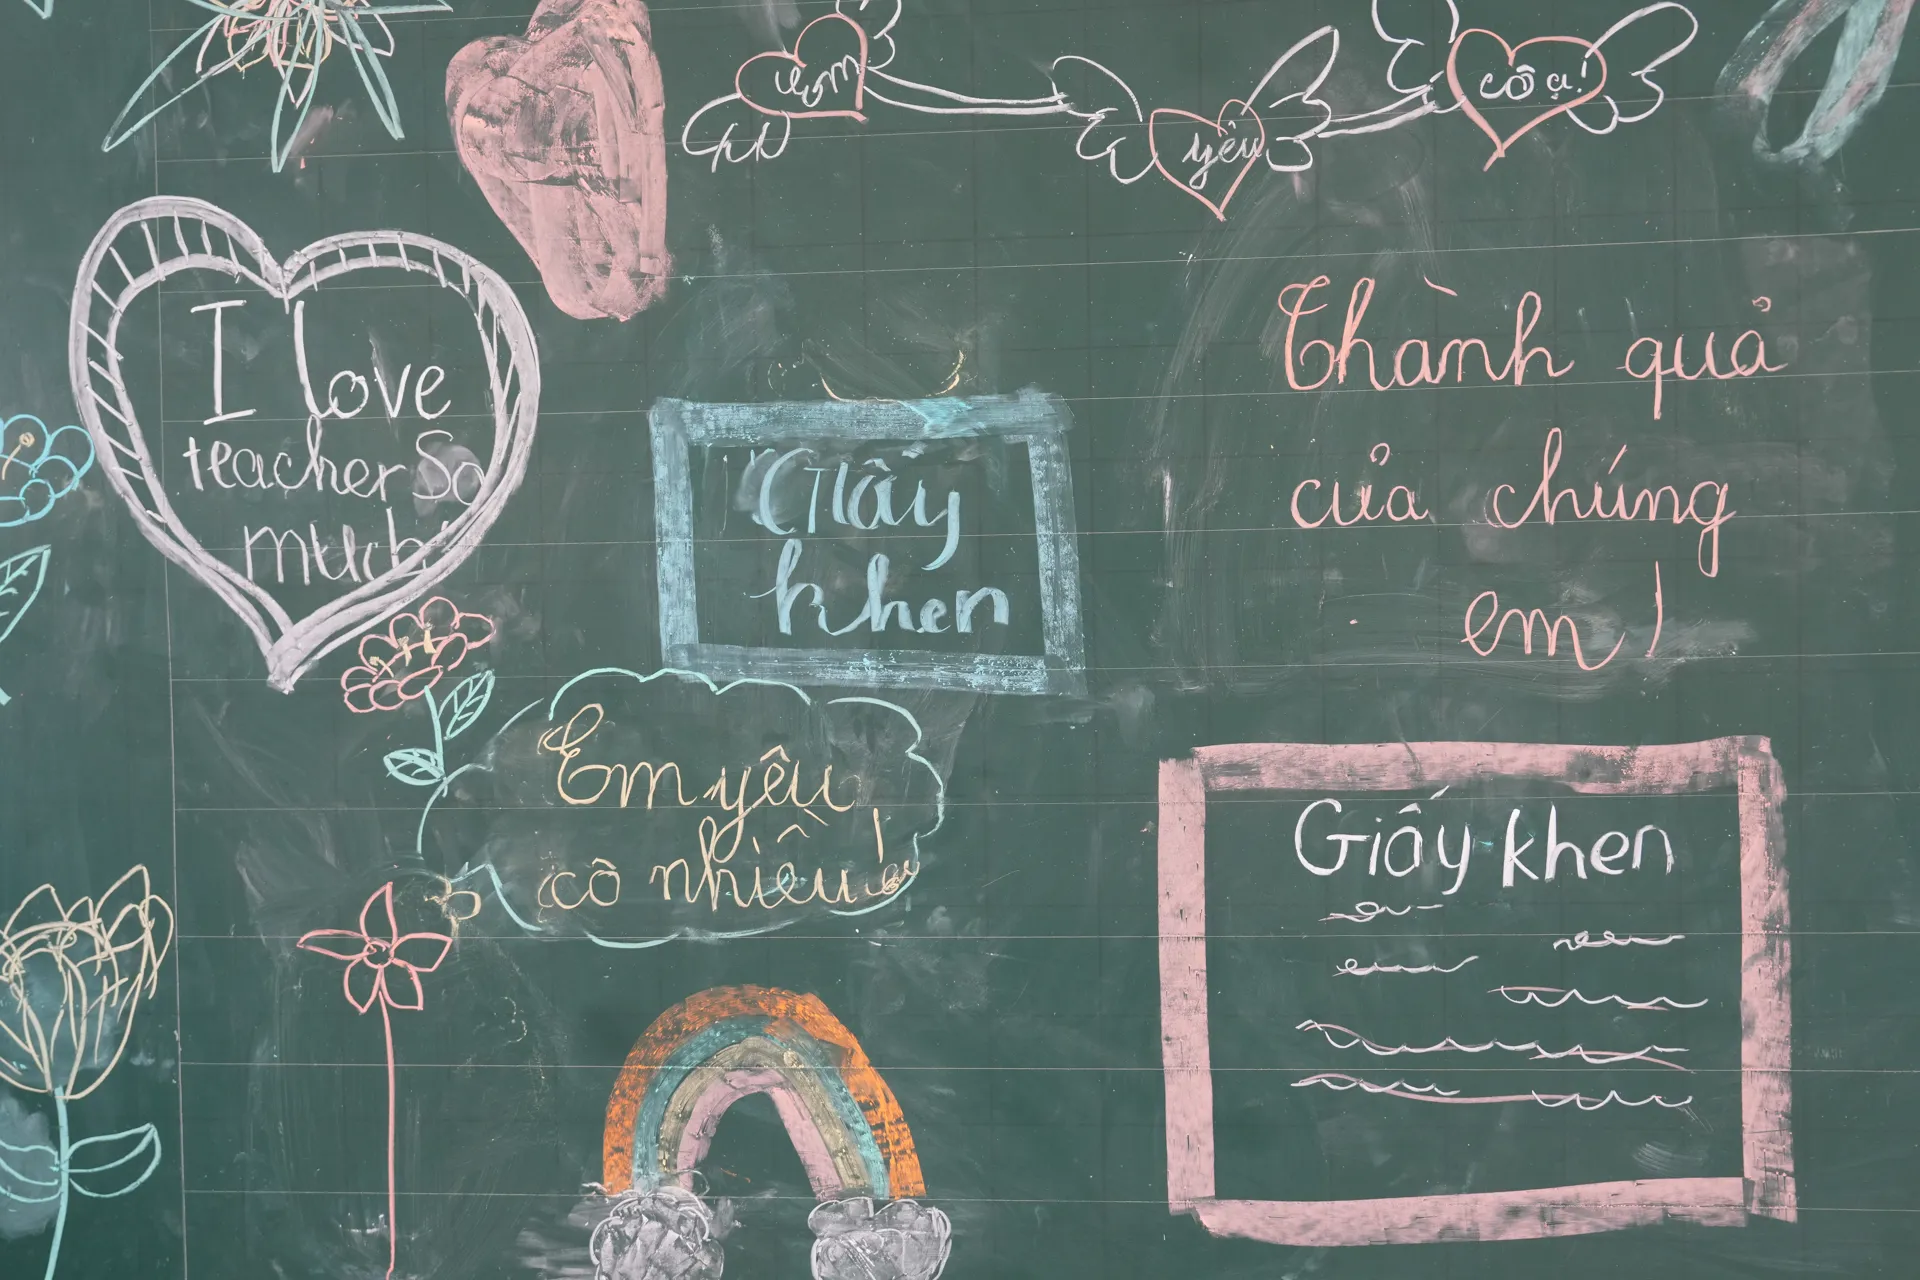 em
yêu
cô ạ!
I love
teacher So
much
Giấy
khen
Thành quả
của chúng
em!
Em yêu
cô nhiều!
Giấy khen